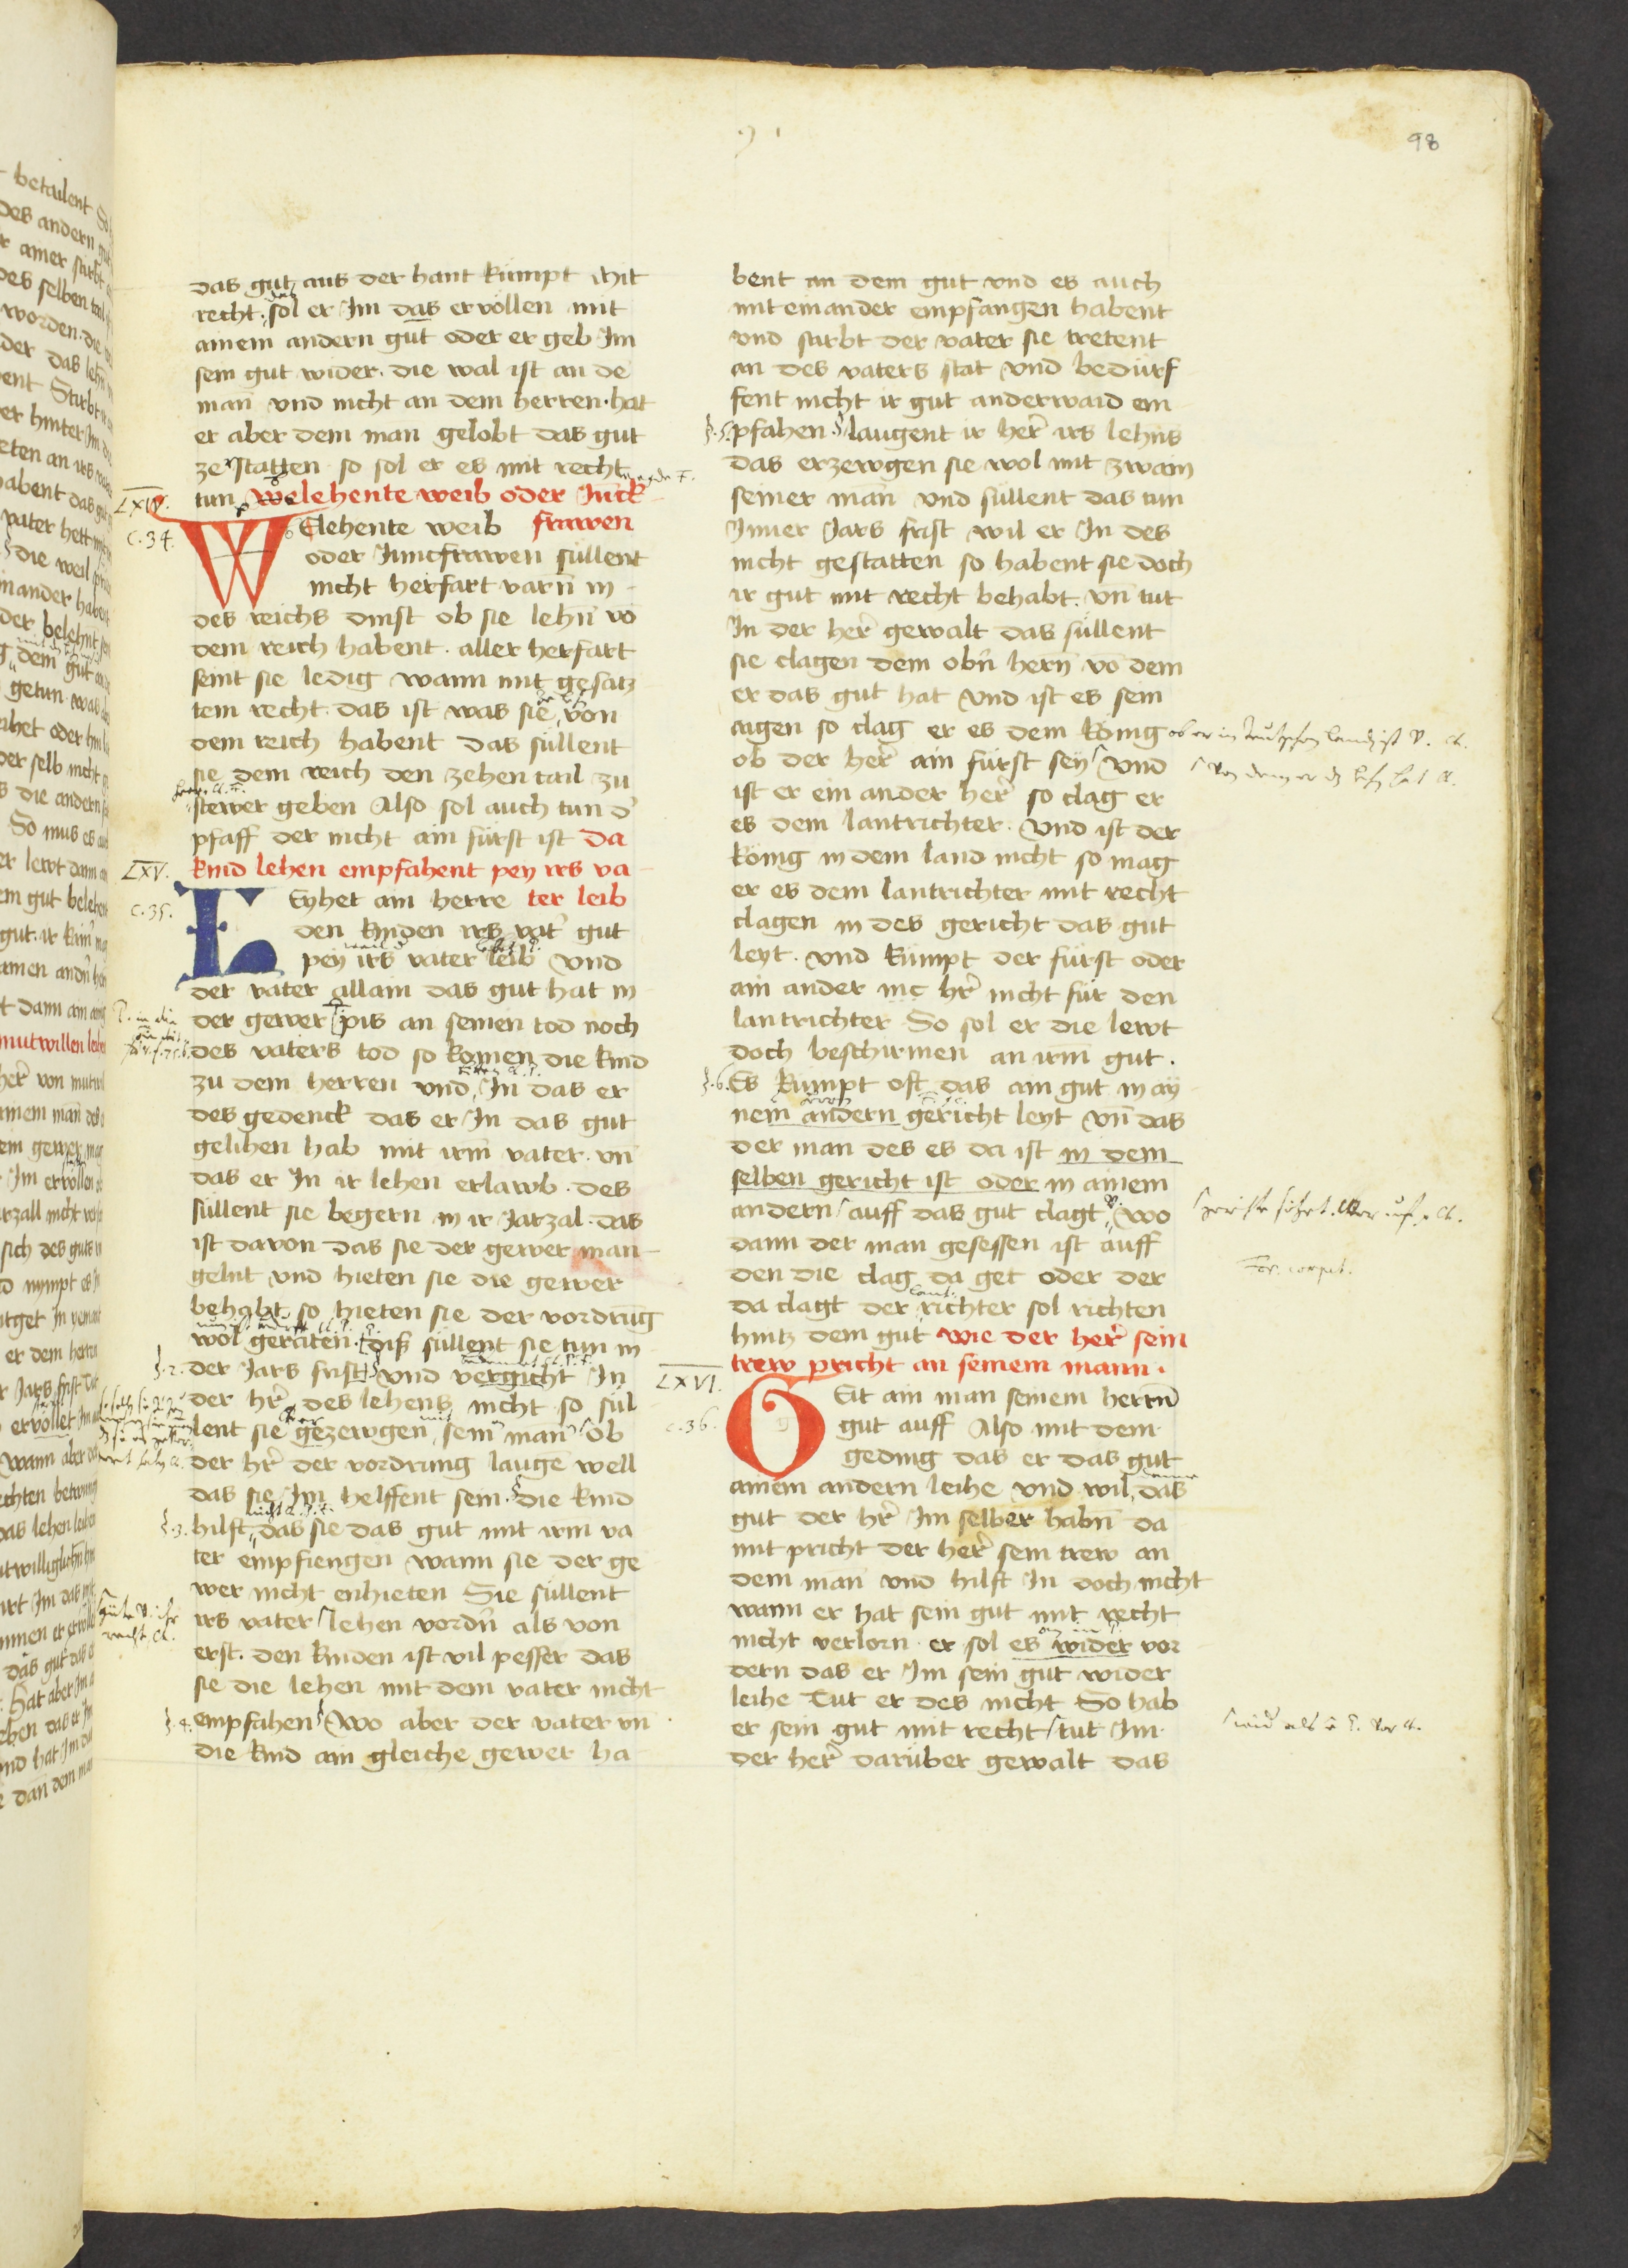 98
das gut aus der hant kumpt mit
recht. sol er Im das ervollen mit
ainem andern gut oder er geb Im
sein gut wider. die wal ist an de
man vnd nicht an dem herren. hat
er aber dem man gelobt das gut
ze statten so sol er es mit recht
LXIV.
tun welehente weib oder Junck
c. 34.
WElehente weib frawen
oder Junckfrawen süllent
nicht herfart varn̄ in
des reichs dinst ob sie lehn̄ vō
dem reich habent. aller herfart
seint sie ledig wann mit gesatz
tem recht. das ist was sie von
dem reich habent das süllent
sie dem reich den zehen tail zu
stewer geben Also sol auch tun d'
pfaff der nicht ain fürst ist Da
LXV.
kind lehen empfahent pey irs va
c. 35.
LEyhet ain herre ter leib
den kinden irs vat' gut
pey irs vater leib vnd
der vater allain das gut hat in
der gewer pis an seinen tod noch
des vaters tod so komen die kind
zu dem herren vnd In das er
des gedenck das er In das gut
gelihen hab mit irm vater. vn̄
das er In ir lehen erlawb. des
süllent sie begern in ir Jarzal. das
ist davon das sie der gewer man
gelnt vnd hieten sie die gewer
behabt so hieten sie der vordrūg
wol geraten. diß süllent sie tun in
§. 2.
der Jars frist vnd vergicht In
der hr̄ des lehens nicht so sül
lent sie gezewgen sein man ob
der hr̄ der vordrung laugē well
das sie Im helffent sein. die kind
§. 3.
hilft das sie das gut mit irm va
ter empfiengen wann sie der ge
wer nicht enhieten Sie süllent
irs vater lehen vordn̄ als von
erst. den kinden ist vil pesser das
sie die lehen mit dem vater nicht
§. 4.
empfahen Wo aber der vater vn̄
die kind ain gleiche gewer ha
bent an dem gut vnd es auch
mit einander empfangen habent
vnd stirbt der vater sie tretent
an des vaters stat vnd bedürf
fent nicht ir gut anderwaid em
§. 5.
pfahen. laugent ir her̄ irs lehns
das erzewgen sie wol mit zwain
seiner man vnd süllent das tun
Inner Jars frist wil er In des
nicht gestatten so habent sie doch
ir gut mit recht behabt. vn̄ tut
In der her̄ gewalt das süllent
sie clagen dem obn̄ hern̄ vō dem
er das gut hat vnd ist es sein
aigen so clag er es dem König
ob der her̄ ain fürst sey vnd
ist er ein ander her̄ so clag er
es dem lantrichter. vnd ist der
König in dem land nicht so mag
er es dem lantrichter mit recht
clagen in des gericht das gut
leyt. vnd kumpt der fürst oder
ain ander hr̄ nicht für den
lantrichter So sol er die lewt
doch beschirmen an irm gut.
§. 6.
Es kumpt oft das ain gut in ay
nem andern gericht leyt vn̄ das
der man des es da ist in dem
selben gericht ist oder in ainem
andern auff das gut clagt wo
dann der man gesessen ist auff
den die clag da get oder der
da clagt der richter sol richten
hintz dem gut wie der her̄ sein
LXVI.
trew pricht an seinem mann.
c. 36.
GEit ain man seinem herrn̄
gut auff Also mit dem
geding das er das gut
ainem andern leihe vnd wil das
gut der hr̄ Im selber habn̄ da
mit pricht der her̄ sein trew an
dem man vnd hilft In doch nicht
wann er hat sein gut mit recht
nicht verlorn. er sol es wider vor
dern das er Im sein gut wider
leihe Tut er des nicht So hab
er sein gut mit recht tut Im
der her̄ darüber gewalt das